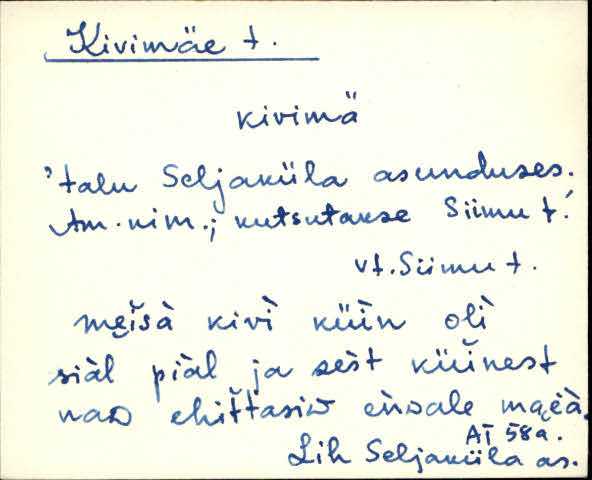 Kivimäe t.
kivimä
'talu Seljaküla asunduses.
Am. nim.; kutsutakse Siimu t.'
vt. Siimu t.
mẹisà kivì küìn olì
siàl piàl ja sešt küìnest
nao ehittasio
AT 58a.
Lih Seljaküla as.